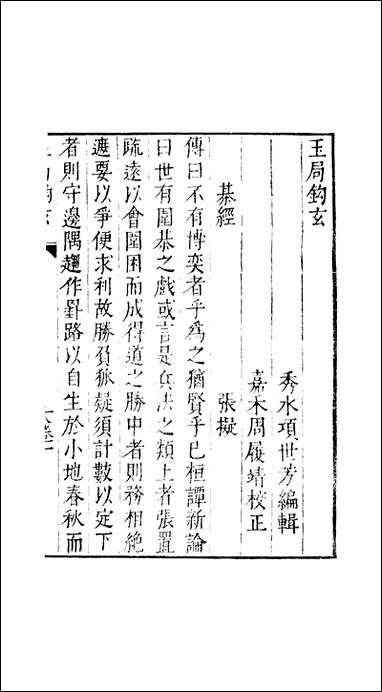 玉局鈎玄
秀水項世芳編輯
嘉禾周履靖校正
棊經 張擬
傳曰不有博奕者乎爲之猶賢乎已桓譚新論
曰世有圍棊之戲或言是兵法之類上者張置
疏遠以會圍困而成得道之勝中者則務相絶
遮要以爭便求利故勝負狐疑須計數以定下
者則守邊隅趨作罫路以自生於小地春秋而